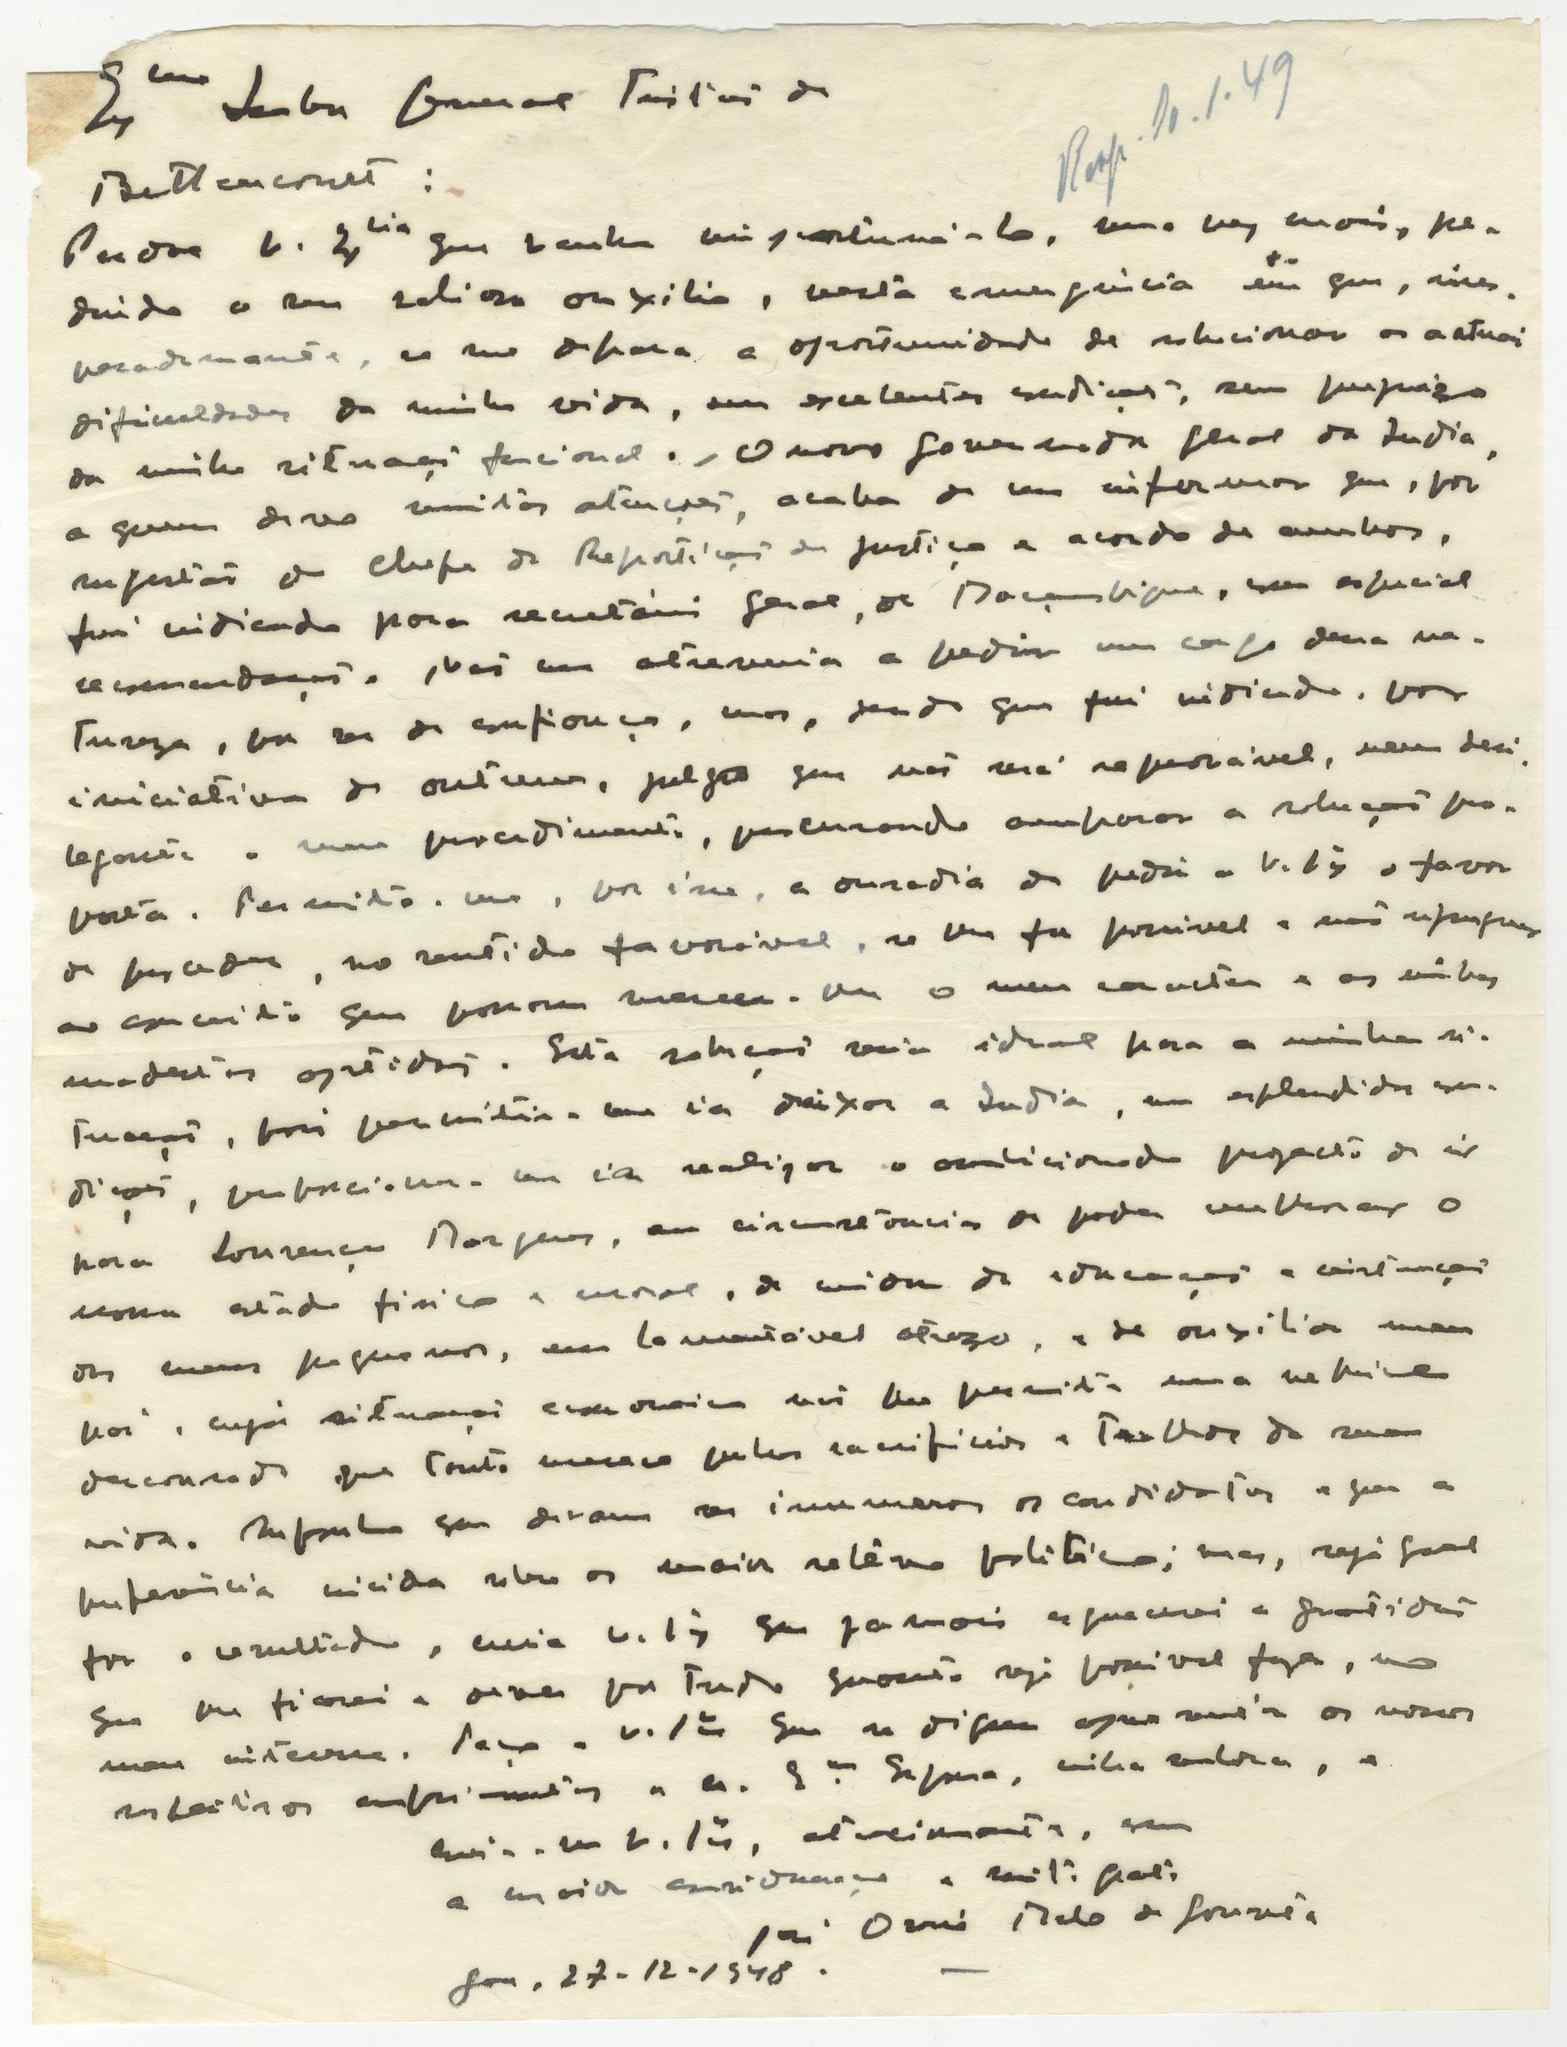 Exmo Senhor General Tristão de
Resp. 10.1.49
Bettencourt :
Perdoe V. Exlia que venha importuná-lo, uma vez mais, pe-
dindo o seu valioso auxílio, nesta emergência em que, ines-
peradamente, se me depara a oportunidade de solucionar as actuais
dificuldades da minha vida, em excelentes condições, sem prejuizo
da minha situação funcional. O novo Governador Geral da India,
a quem devo muitas atenções, acaba de me informar que, por
sugestão do Chefe da Repartição de Justiça e acordo de ambos,
fui indicado para secretário Geral, de Moçambique, com especial
recomendação. Não me atreveria a pedir um cargo dessa na-
tureza, por ser de confiança, mas, desde que fui indicado, por
iniciativa de outrem, julgo que não será reprovável, nem desi-
legante o meu procedimento, procurando amparar a solução pro-
posta. Permita-me, por isso, a ousadia de pedir a V. Ex o favor
de proceder, no sentido favorável, se lhe for possivel e não repugnar
ao conceito que possam merecer-lhe o meu caracter e as minhas
modestas aptidões. Esta solução seria ideal para a minha si-
tuação, pois permitir-me-ia deixar a India, em esplendidas con-
dições, proporcionar-me-ia realizar o ambicionado projecto de ir
para Lourenço Marques, em circunstâncias de poder melhorar o
nosso estado fisico e moral, de cuidar da educação e instrução
dos meus pequenos, em lamentável atrazo, e de auxiliar meu
pai, cuja situação economica não lhe permite uma velhice
descansada que tanto merece pelos sacrificios e trabalhos da sua
vida. Suponho que devam ser inumeros os candidatos e que a
preferência incida sobre os de maior relêvo politico; mas, seja qual
for o resultado, creia V. Ex que jamais esquecerei a gratidão
que lhe ficarei a dever por tudo quanto seja possivel fazer, no
meu interesse. Peço a V. Ex que se digne apresentar os nossos
respeitosos cumprimentos a sua Exma Esposa, minha senhora, e
creia-me V. Ex, atenciosamente, com
a maior consideração e muito grato
José Osorio Melo de Gouveia
Goa, 27-12-1948.